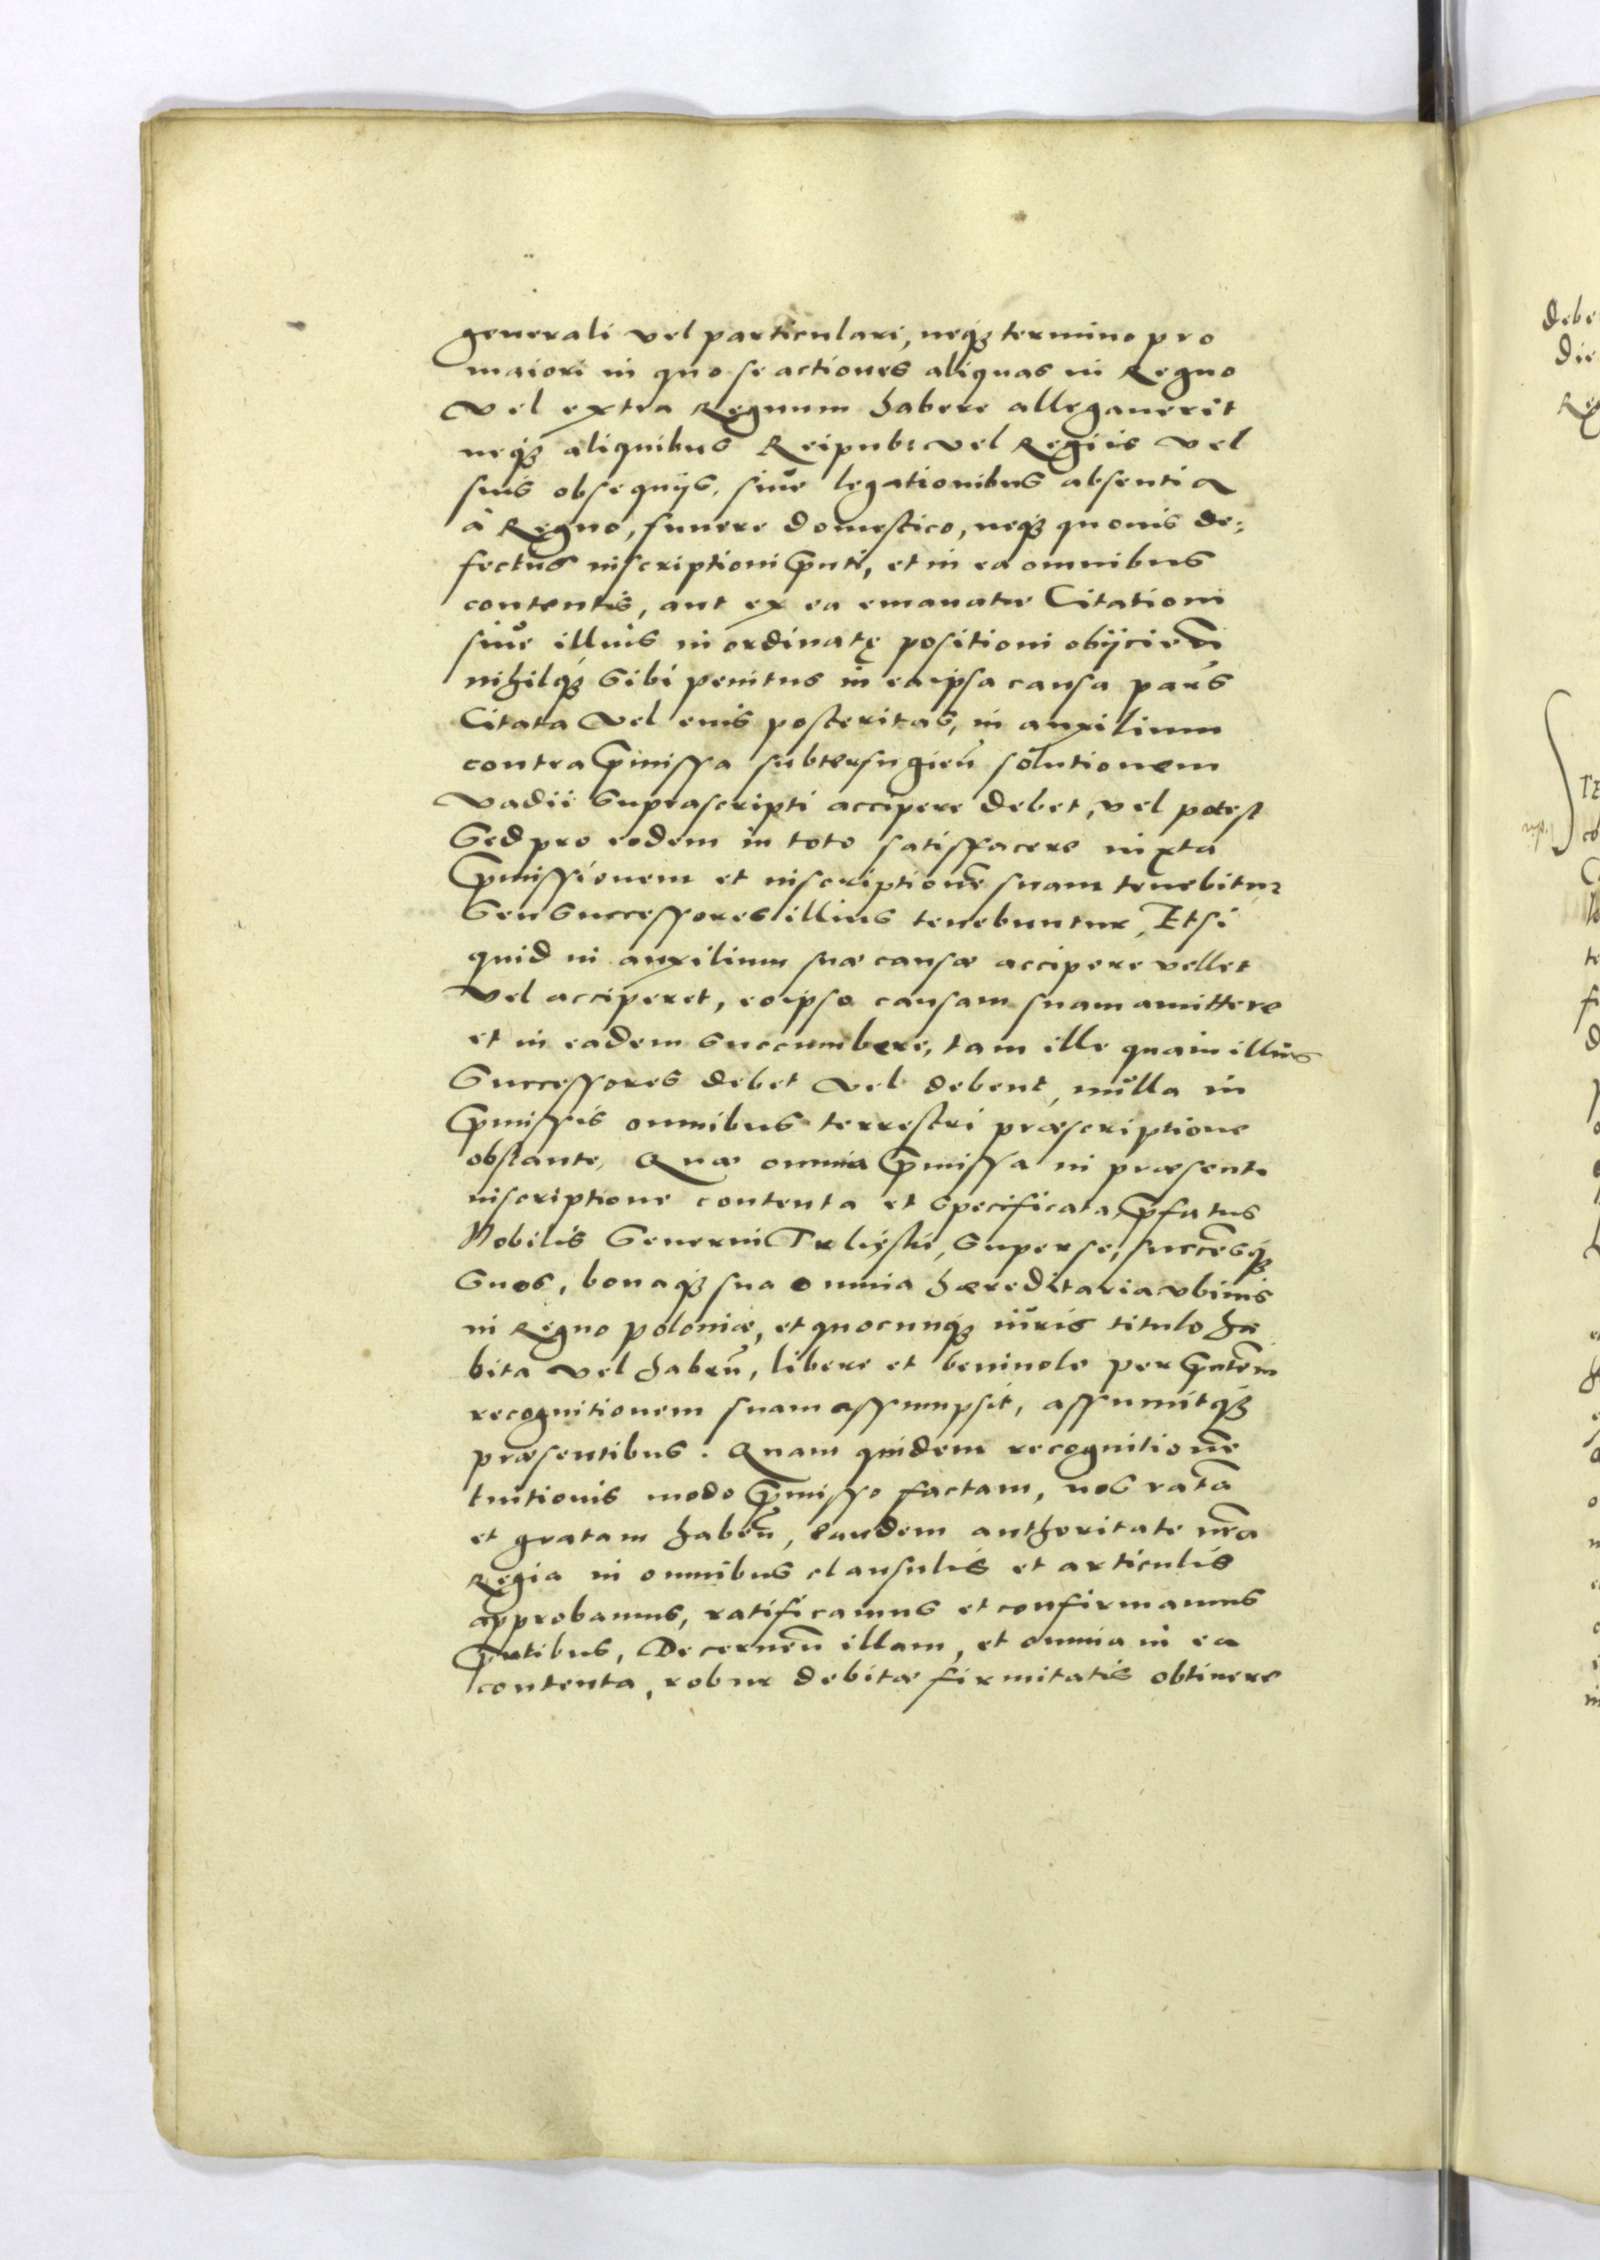 generali vel particulari, neq₃ termino pro
maiori in quo se actiones aliquas in Regno
vel extra Regnum habere allegauerit
neq₃ aliquibus Reipub: vel Regiis vel
suis obsequijs, siue legationibus absentia
à Regno, funere domestico, neq₃ quouis de:
fectus inscriptioni pnti, et in ea omnibus
contentis, aut ex ea emanatae Citationi
siue illius inordinatę positioni obijcien̄
nihilq₃ sibi penitus in ea ipsa causa pars
Citata vel euis posteritas, in auxilium
contra pmissa subterfugien̄ solutionem
vadii suprascripti accipere debet, vel potest
Sed pro eodem in toto satisfacere iuxta
pmissionem et inscriptionē suam tenebitur
Seu Successores illius tenebuntur, Et si
quid in auxilium suae causae accipere vellet
vel acciperet, eo ipso causam suam amittere
et in eadem succumbere, tam ille quam illius
Successores debet vel debent, nulla in
pmissis omnibus terrestri praescriptione
obstante, Quae omnia pmissa in praesenti
inscriptione contenta et specificata, pfatus
Nobilis Seuerini super se, succēsq₃
suos, bonaq₃ sua omnia haereditaria vbiuis
in Regno poloniae, et quocunq₃ iuris titulo ha
bita vel haben̄, libere et beniuole per pntēm
recognitionem suam assumpsit, assumitq₃
praesentibus. Quam quidem recognitionē
tuitionis modo pmisso factam, nos ratā
et gratam haben̄, eandem authoritate nrā
Regia in omnibus clausulis et articulis
approbamus, ratificamus et confirmamus
pntibus, Decernen̄ illam, et omnia in ea
contenta, robur debitae firmitatis obtinere